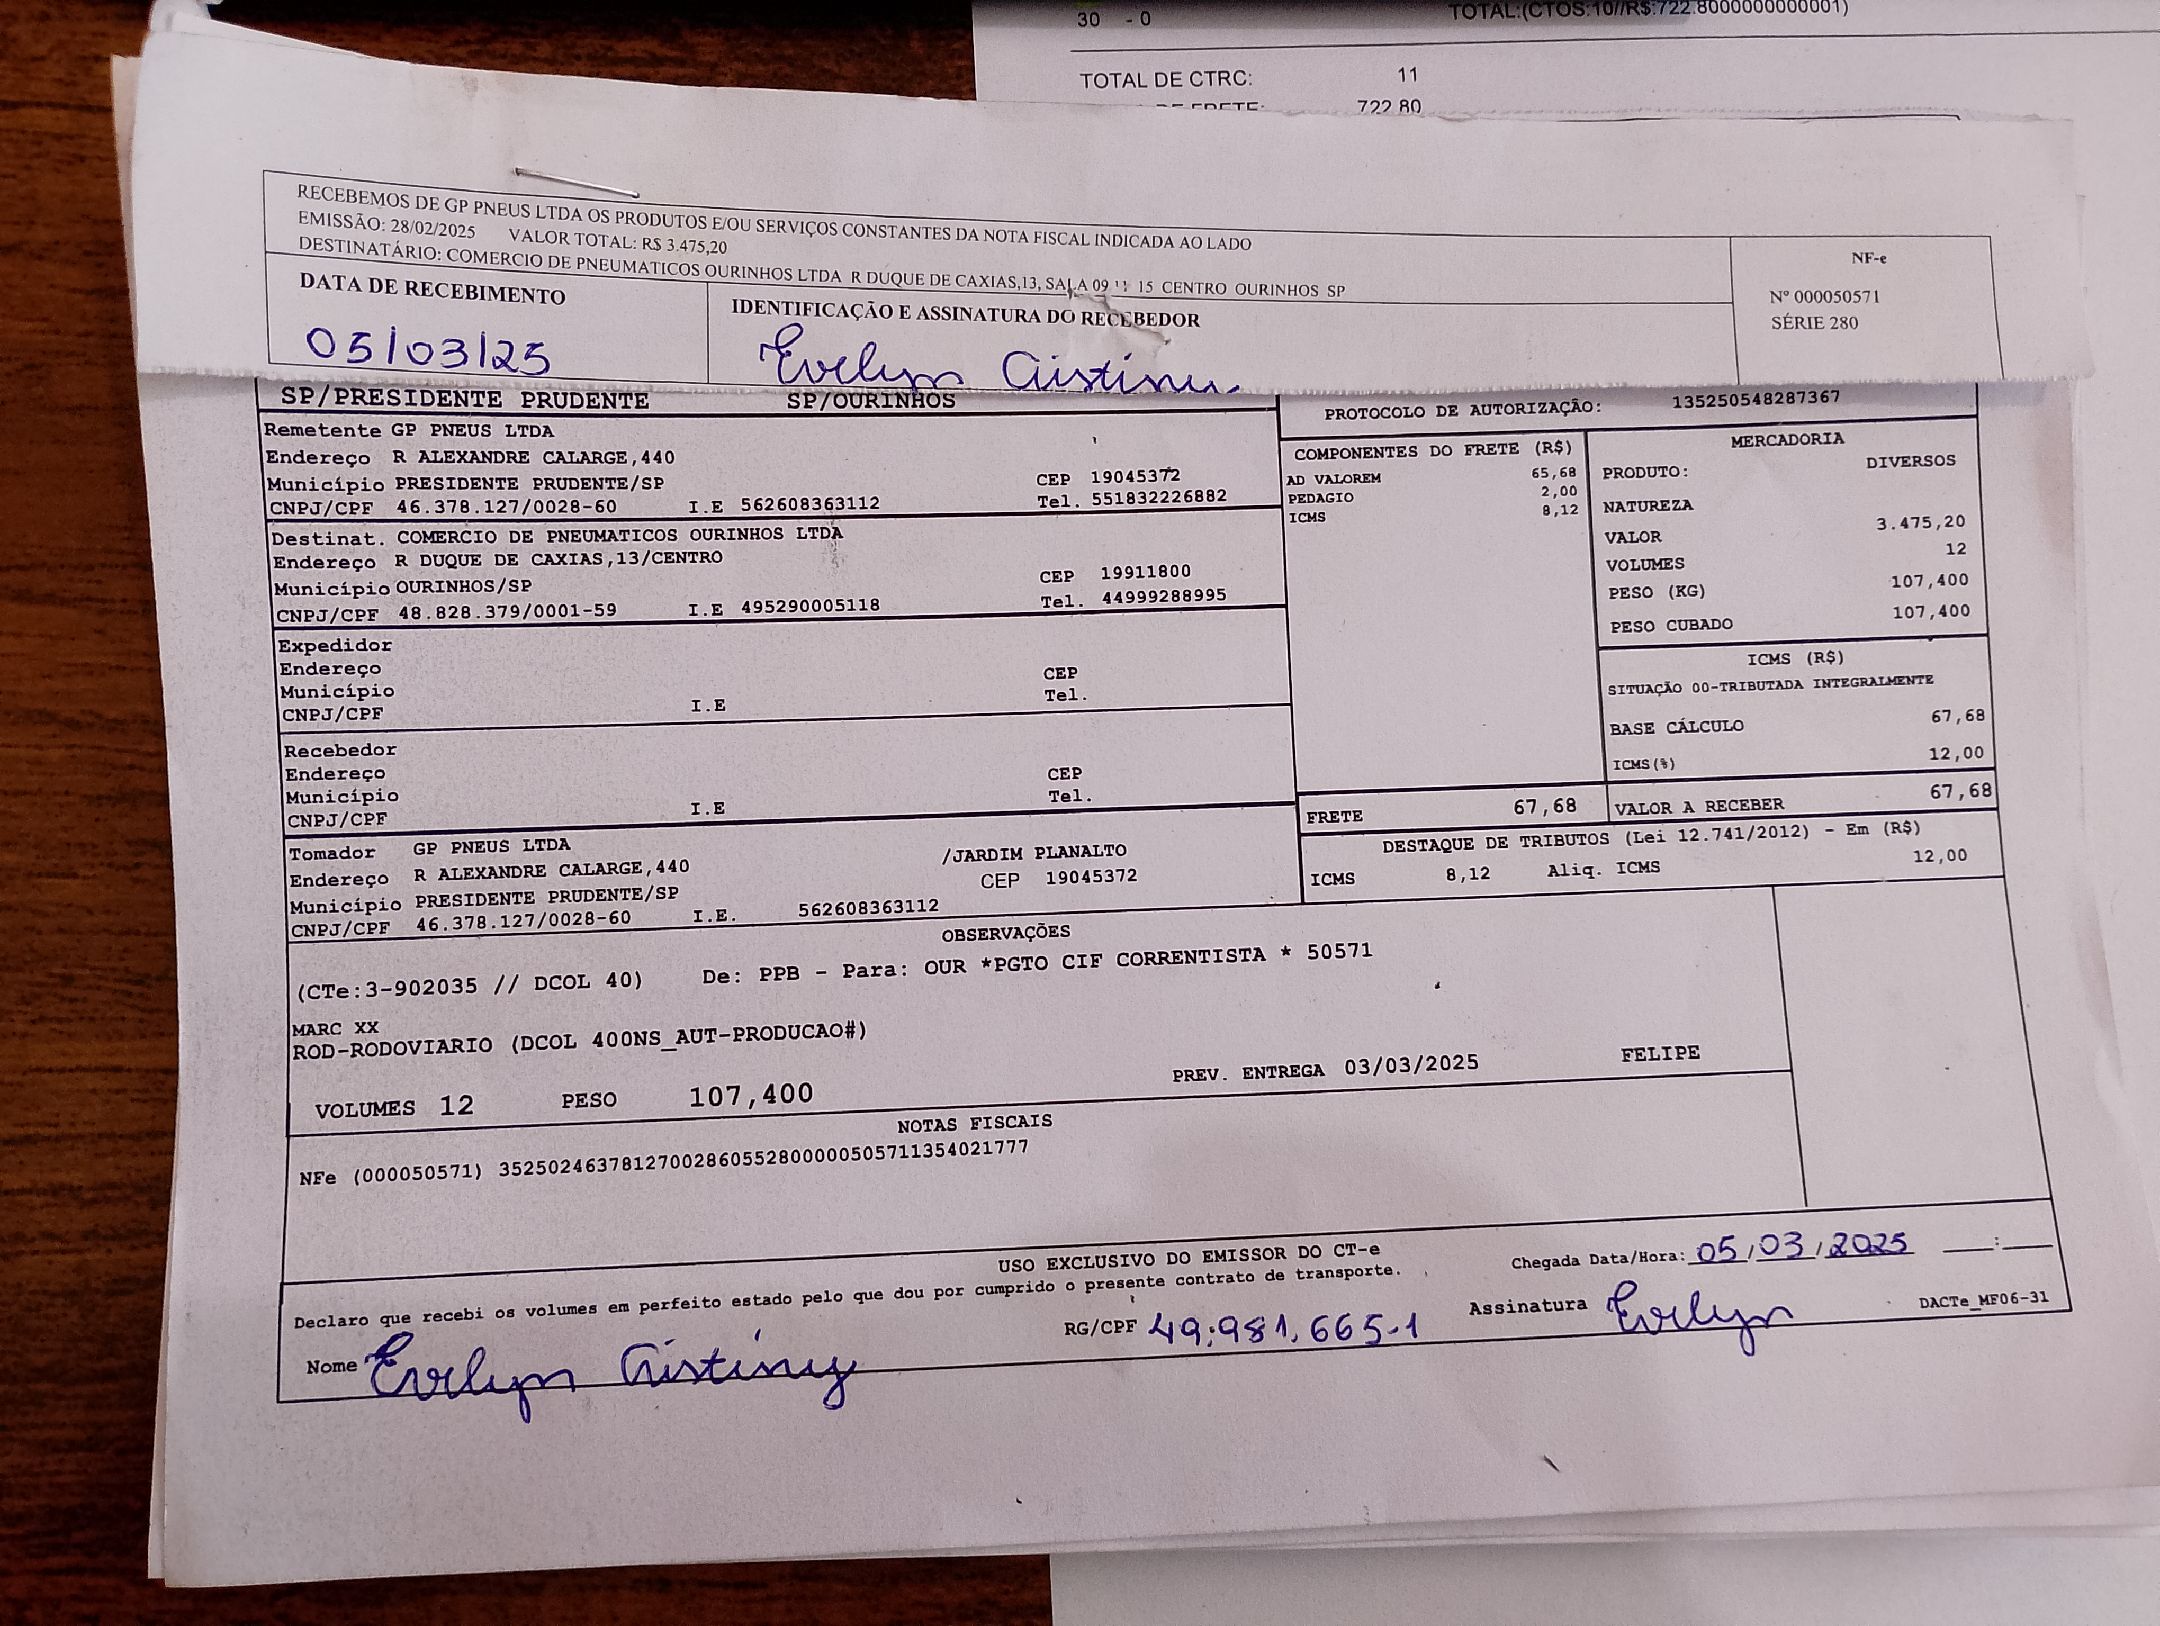 30 - 0 TOTAL:(CTOS:10//R$:722.8000000000001)
TOTAL DE CTRC: 11
DE FRETE: 722.80
RECEBEMOS DE GP PNEUS LTDA OS PRODUTOS E/OU SERVIÇOS CONSTANTES DA NOTA FISCAL INDICADA AO LADO
EMISSÃO: 28/02/2025 VALOR TOTAL: R$ 3.475,20
DESTINATÁRIO: COMERCIO DE PNEUMATICOS OURINHOS LTDA R DUQUE DE CAXIAS,13, SALA 09 11 15 CENTRO OURINHOS SP
NF-e
Nº 000050571
SÉRIE 280
DATA DE RECEBIMENTO
05/03/25
IDENTIFICAÇÃO E ASSINATURA DO RECEBEDOR
Evelyn Cristiny
SP/PRESIDENTE PRUDENTE SP/OURINHOS
PROTOCOLO DE AUTORIZAÇÃO: 135250548287367
Remetente GP PNEUS LTDA
Endereço R ALEXANDRE CALARGE,440
Município PRESIDENTE PRUDENTE/SP CEP 19045372
CNPJ/CPF 46.378.127/0028-60 I.E 562608363112 Tel. 551832226882
Destinat. COMERCIO DE PNEUMATICOS OURINHOS LTDA
Endereço R DUQUE DE CAXIAS,13/CENTRO
Município OURINHOS/SP CEP 19911800
CNPJ/CPF 48.828.379/0001-59 I.E 495290005118 Tel. 44999288995
Expedidor
Endereço
Município CEP
CNPJ/CPF I.E Tel.
Recebedor
Endereço
Município CEP
CNPJ/CPF I.E Tel.
Tomador GP PNEUS LTDA
Endereço R ALEXANDRE CALARGE,440 /JARDIM PLANALTO
Município PRESIDENTE PRUDENTE/SP CEP 19045372
CNPJ/CPF 46.378.127/0028-60 I.E. 562608363112
COMPONENTES DO FRETE (R$)
AD VALOREM 65,68
PEDAGIO 2,00
ICMS 8,12
MERCADORIA
PRODUTO: DIVERSOS
NATUREZA
VALOR 3.475,20
VOLUMES 12
PESO (KG) 107,400
PESO CUBADO 107,400
ICMS (R$)
SITUAÇÃO 00-TRIBUTADA INTEGRALMENTE
BASE CÁLCULO 67,68
ICMS(%) 12,00
FRETE 67,68 VALOR A RECEBER 67,68
DESTAQUE DE TRIBUTOS (Lei 12.741/2012) - Em (R$)
ICMS 8,12 Aliq. ICMS 12,00
OBSERVAÇÕES
(CTe:3-902035 // DCOL 40) De: PPB - Para: OUR *PGTO CIF CORRENTISTA * 50571
MARC XX
ROD-RODOVIARIO (DCOL 400NS_AUT-PRODUCAO#)
VOLUMES 12 PESO 107,400 PREV. ENTREGA 03/03/2025 FELIPE
NOTAS FISCAIS
NFe (000050571) 35250246378127002860552800000505711354021777
USO EXCLUSIVO DO EMISSOR DO CT-e
Declaro que recebi os volumes em perfeito estado pelo que dou por cumprido o presente contrato de transporte.
Chegada Data/Hora: 05/03/2025 __:__
Nome Evelyn Cristiny RG/CPF 49.981.665-1 Assinatura Evelyn DACTe_MF06-31